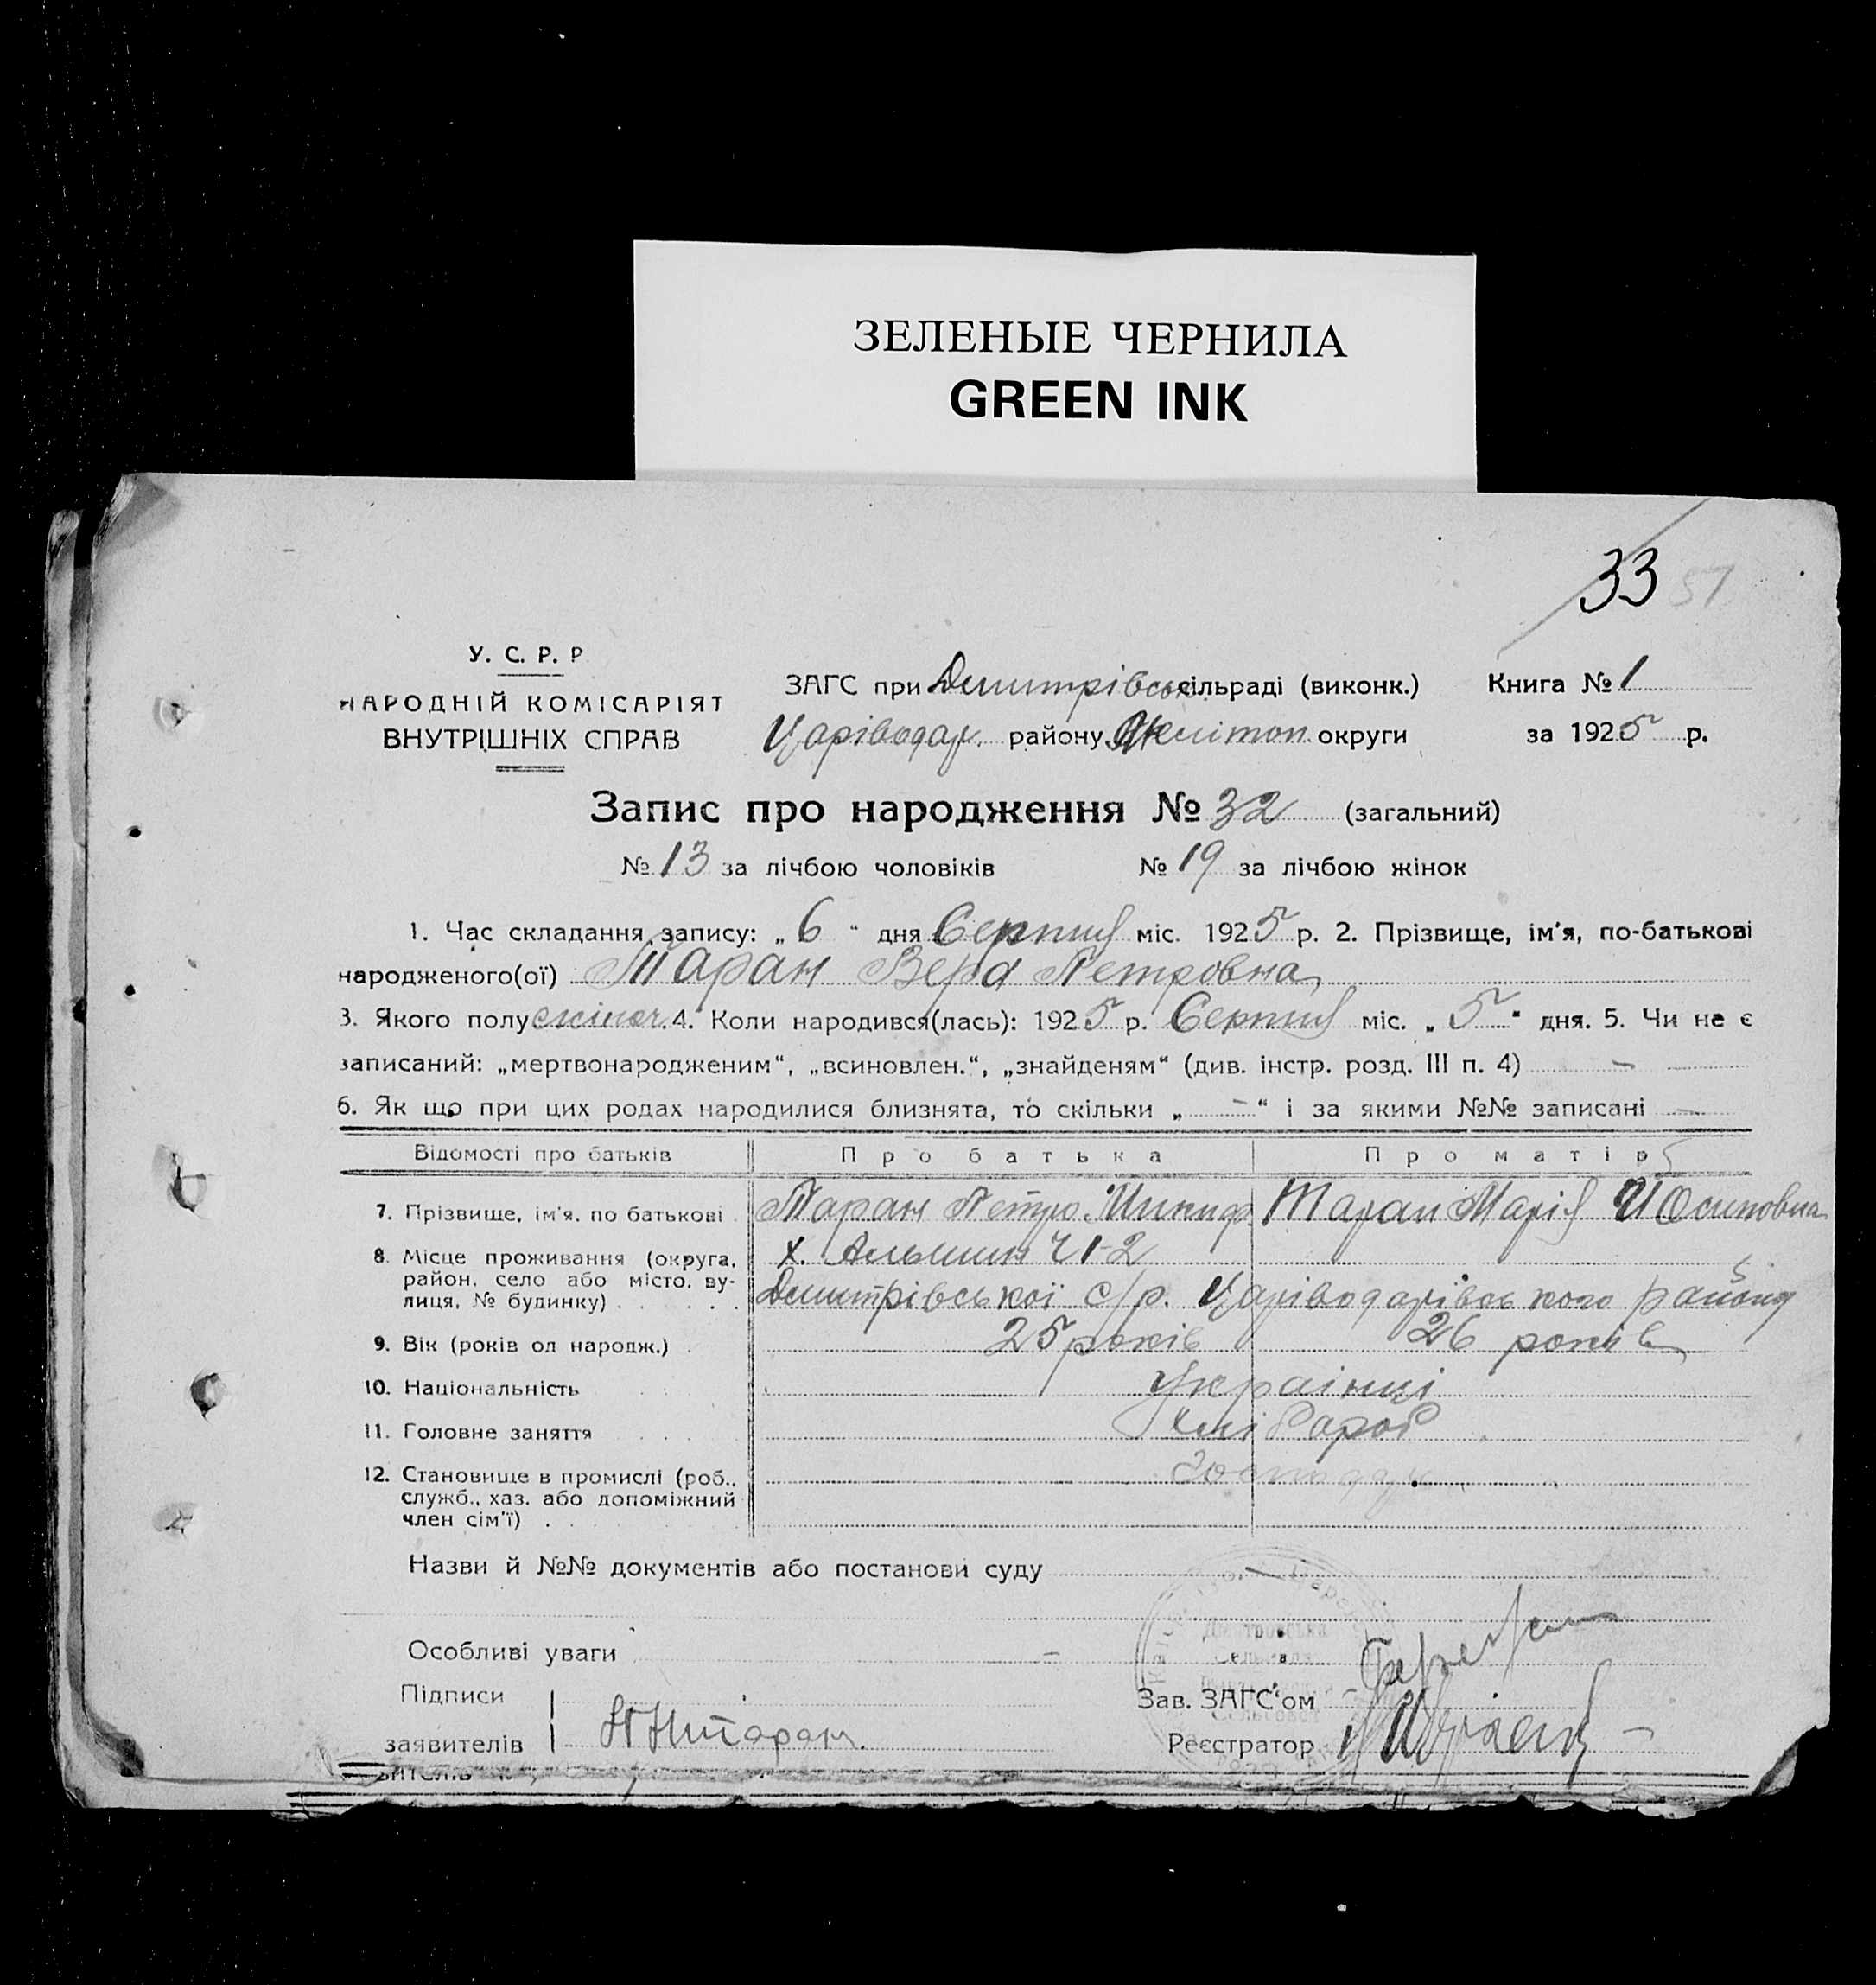 ЗЕЛЕНЫЕ ЧЕРНИЛА
GREEN INK
33 51
У. С. Р. Р
НАРОДНІЙ КОМІСАРІЯТ
ВНУТРІШНІХ СПРАВ
ЗАГС при Дмитрівськ сільраді (виконк.)
Царіводар. району Мелітоп. округи
Книга № 1
за 1925 р.
Запис про народження № 32 (загальний)
№ 13 за лічбою чоловіків № 19 за лічбою жінок
1. Час складання запису: „ 6 “ дня Серпня міс. 1925 р. 2. Прізвище, ім'я, по-батькові
народженого(ої) Таран Вера Петровна
3. Якого полу жіноч. 4. Коли народився(лась): 1925 р. Серпня міс. „ 5 “ дня. 5. Чи не є
записаний: „мертвонародженим“, „всиновлен.“, „знайденям“ (див. інстр. розд. III п. 4) —
6. Як що при цих родах народилися близнята, то скільки „ — “ і за якими №№ записані —
Відомості про батьків Про батька Про матір
7. Прізвище, ім'я, по батькові Таран Петро Микид Таран Марія Иосиповна
8. Місце проживання (округа, х. Альмин ч 1-2
район, село або місто, ву- Дмитрівської с/р. Царіводарівського района
лиця, № будинку)
9. Вік (років од народж.) 25 років 26 років
10. Національність Українці
11. Головне заняття Хліборов
12. Становище в промислі (роб., господар.
служб., хаз. або допоміжний
член сім'ї)
Назви й №№ документів або постанови суду —
Особливі уваги —
Підписи
заявителів Таран
Зав. ЗАГС'ом
Реєстратор